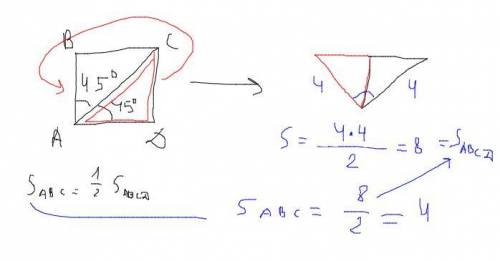 B C
45°
45°
A D
4 4
S = 4·4/2 = 8 = S ABCD
S ABC = 1/2 S ABCD
S ABC = 8/2 = 4